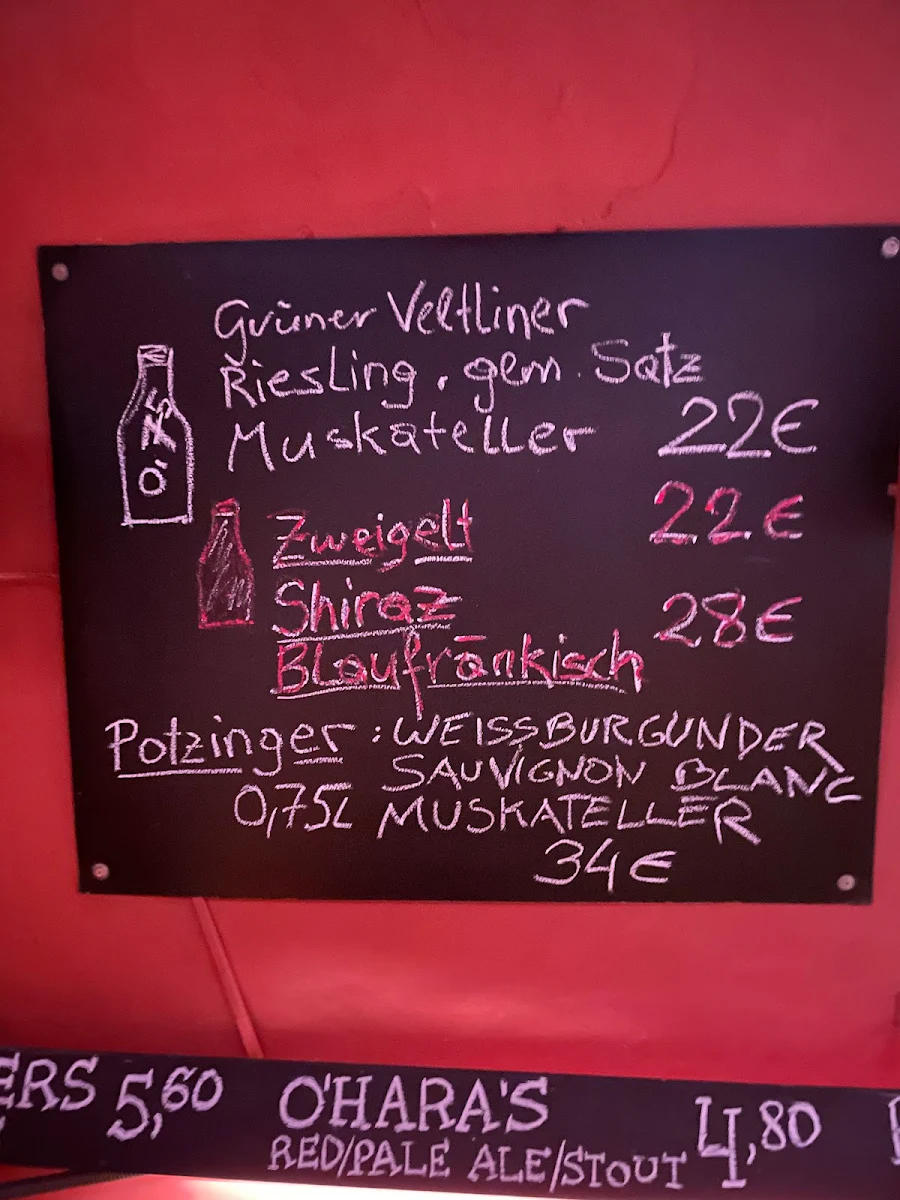 Grüner Veltliner
Riesling. gem. Satz
Muskateller 22€
0,75
Zweigelt 22€
Shiraz 28€
Blaufränkisch
Potzinger: WEISSBURGUNDER
SAUVIGNON BLANC
0,75L MUSKATELLER
34€
ERS 5,60 O'HARA'S 4,80
RED/PALE ALE/STOUT